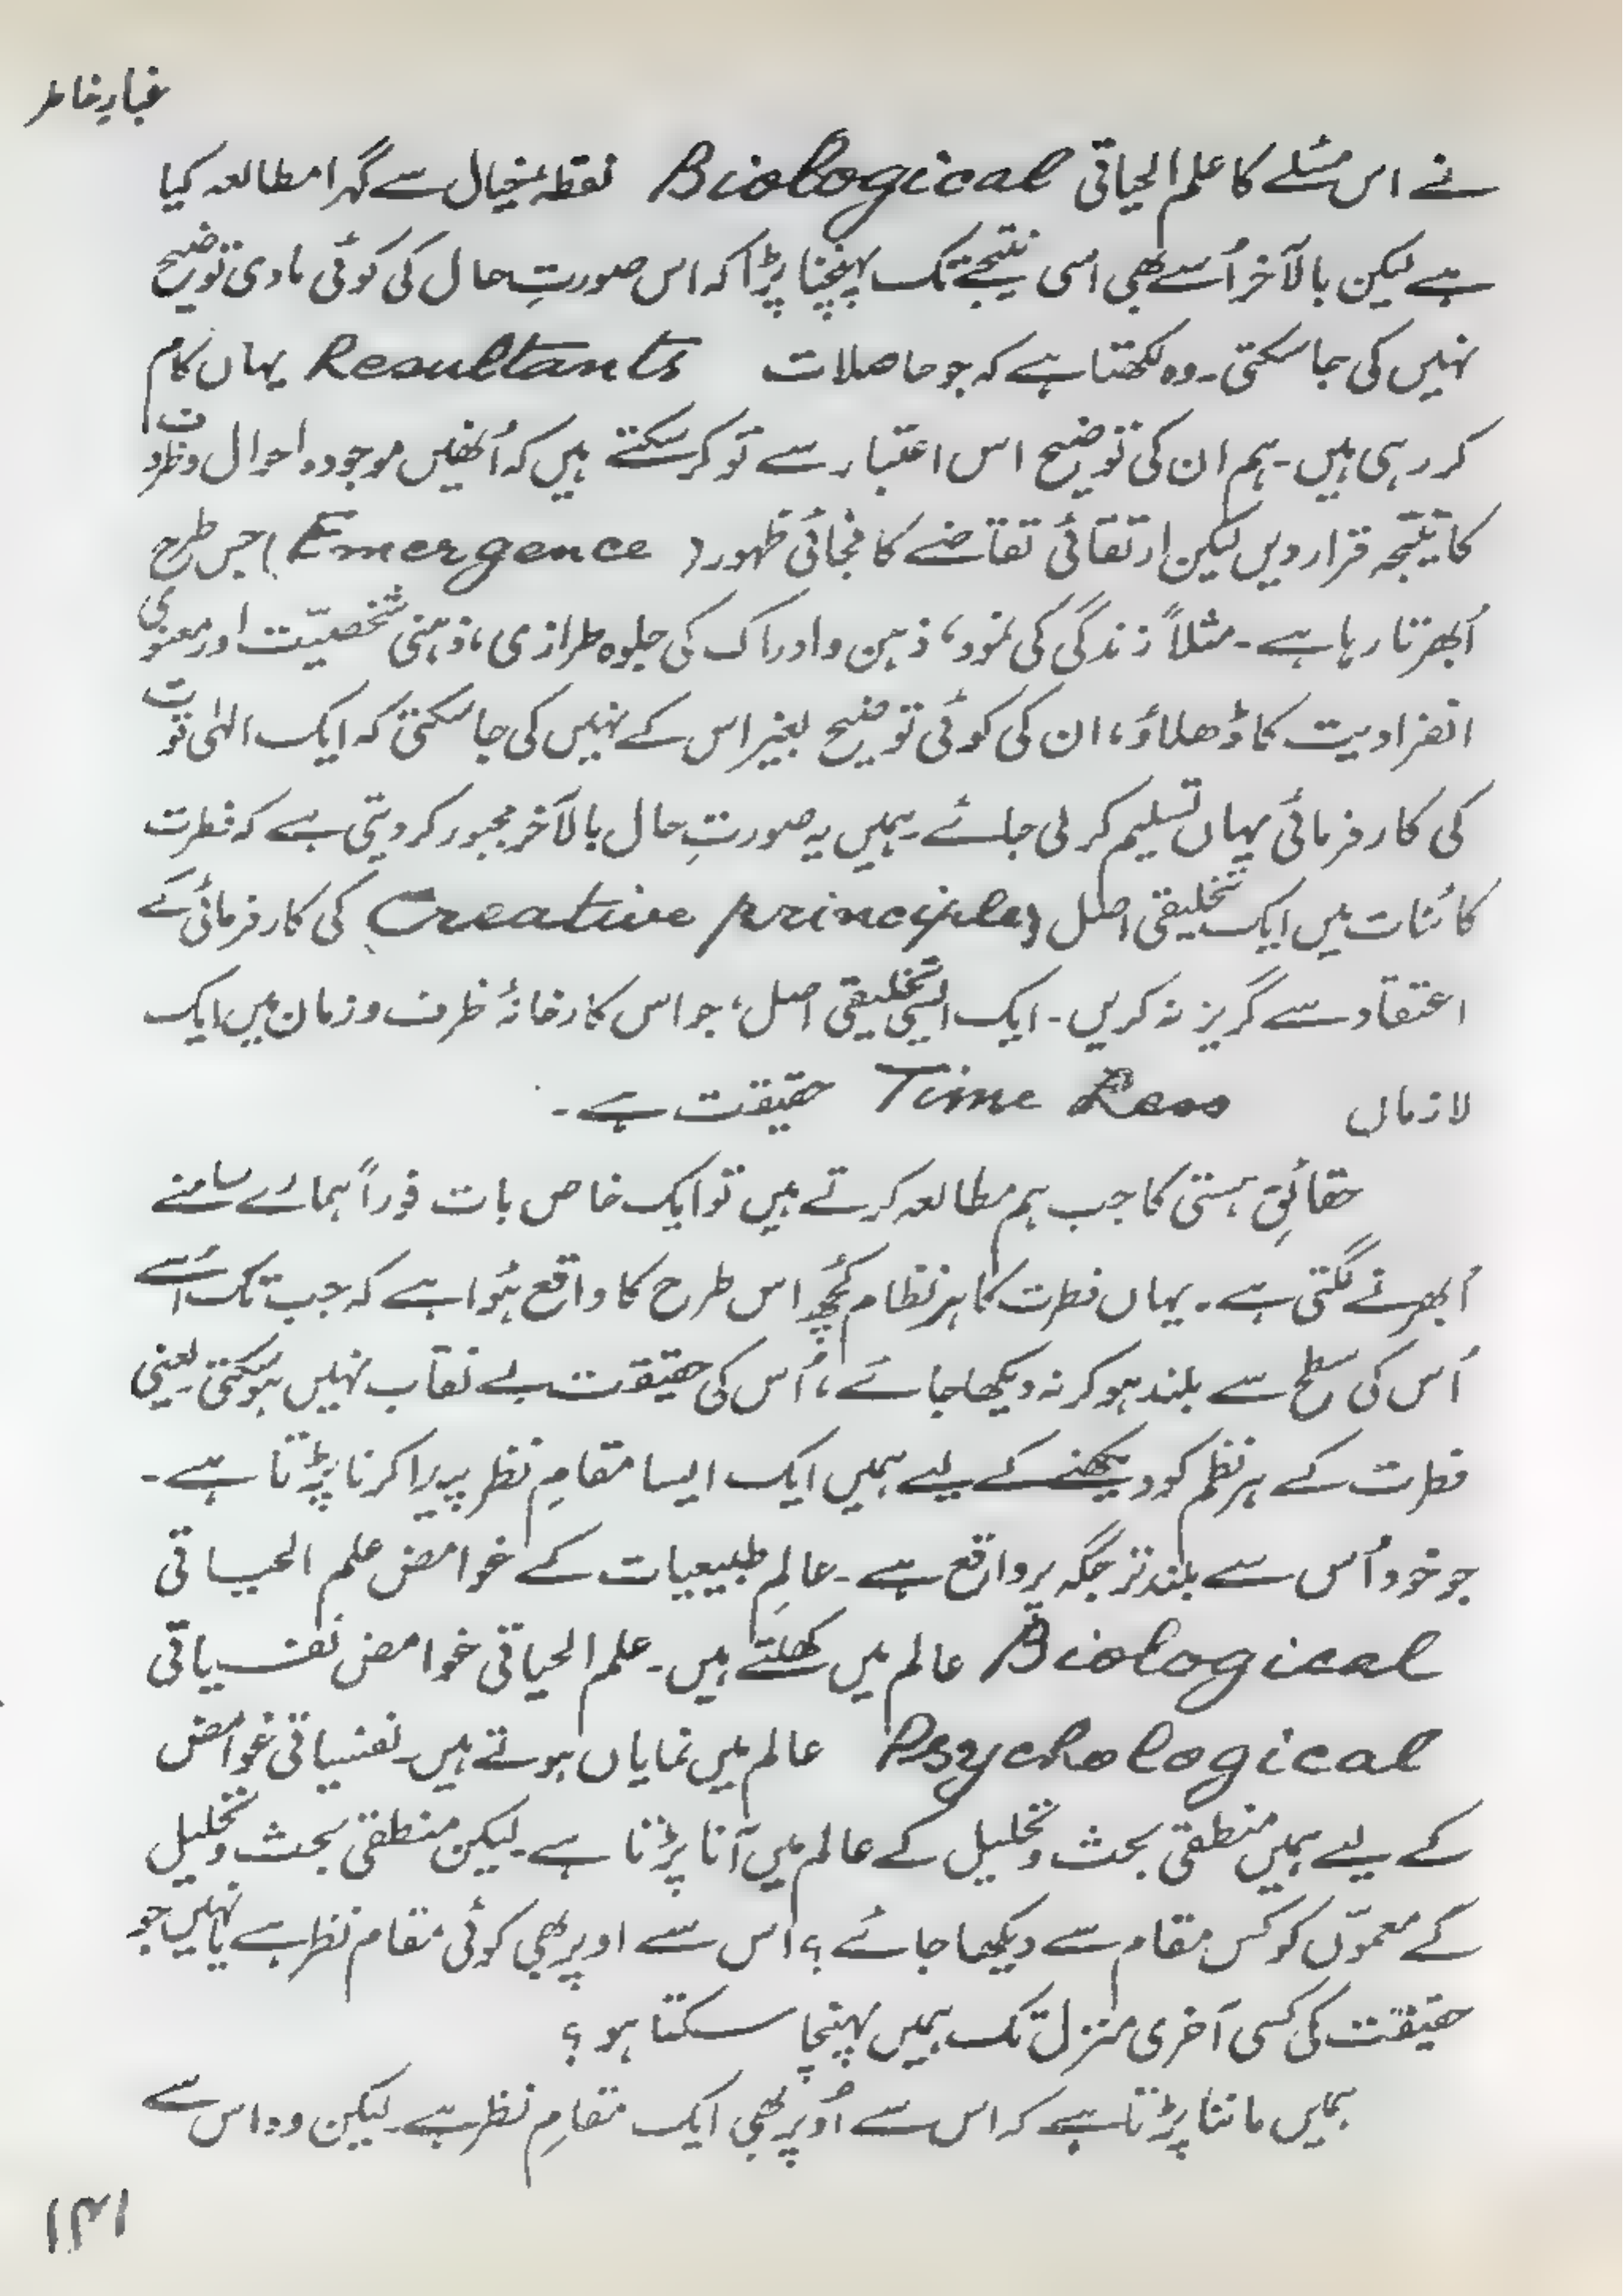 غبارِ خاطر
نے اس مسٔلے کا علم الحیاتی Biological نقطۂ خیال سے گہرا مطالعہ کیا
ہے لیکن بالآخر اُسے بھی اسی نتیجے تک پہنچنا پڑا کہ اس صورتِ حال کی کوئی مادی توضیح
نہیں کی جاسکتی۔ وہ لکھتا ہے کہ جو حاصلات Resultants یہاں کام
کر رہی ہیں۔ ہم ان کی توضیح اس اعتبار سے تو کرسکتے ہیں کہ اُنھیں موجودہ احوال و ظروف
کا نتیجہ قرار دیں لیکن ارتقائی تقاضے کا فجائی ظہور (Emergence) جس طرح
اُبھرتا رہا ہے۔ مثلاً زندگی کی نمود، ذہن و ادراک کی جلوہ طرازی، ذہنی شخصیّت اور معنوی
انفرادیت کا ڈھلاؤ، ان کی کوئی توضیح بغیر اس کے نہیں کی جاسکتی کہ ایک الٰہی قوت
کی کارفرمائی یہاں تسلیم کرلی جائے۔ ہمیں یہ صورتِ حال بالآخر مجبور کردیتی ہے کہ فطرت
کائنات میں ایک تخلیقی اصل (Creative principle) کی کارفرمائی کے
اعتقاد سے گریز نہ کریں۔ ایک ایسی تخلیقی اصل، جو اس کارخانۂ ظرف و زمان میں ایک
لازماں Time Less حقیقت ہے۔
حقائقِ ہستی کا جب ہم مطالعہ کرتے ہیں تو ایک خاص بات فوراً ہمارے سامنے
اُبھرنے لگتی ہے۔ یہاں فطرت کا ہر نظام کُچھ اس طرح کا واقع ہُوا ہے کہ جب تک اُسے
اُس کی سطح سے بلند ہوکر نہ دیکھا جائے، اُس کی حقیقت بے نقاب نہیں ہوسکتی یعنی
فطرت کے ہر نظم کو دیکھنے کے لیے ہمیں ایک ایسا مقامِ نظر پیدا کرنا پڑتا ہے۔
جو خود اُس سے بلند تر جگہ پر واقع ہے۔ عالمِ طبیعیات کے غوامض علم الحیاتی
Biological عالم میں کھلتے ہیں۔ علم الحیاتی غوامض نفسیاتی
Psychological عالم میں نمایاں ہوتے ہیں۔ نفسیاتی غوامُض
کے لیے ہمیں منطقی بحث و تحلیل کے عالم میں آنا پڑتا ہے۔ لیکن منطقی بحث و تحلیل
کے معموّں کو کس مقام سے دیکھا جائے؟ اس سے اوپر بھی کوئی مقام نظر ہے یا نہیں جو
حقیقت کی کسی آخری منزل تک ہمیں پہنچا سکتا ہو؟
ہمیں ماننا پڑتا ہے کہ اس سے اُوپر بھی ایک مقامِ نظر ہے۔ لیکن وہ اس سے